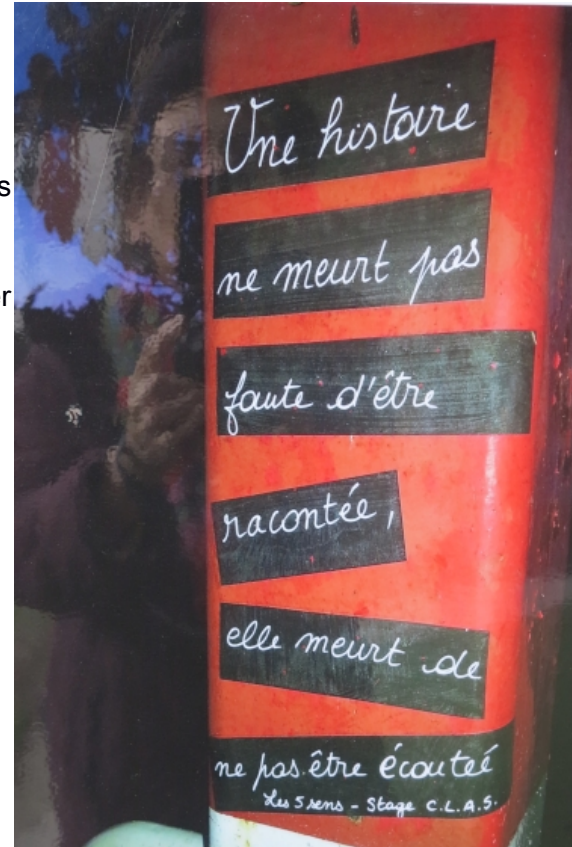 Une histoire
ne meurt pas
faute d'être
racontée,
elle meurt de
ne pas être écoutée
Les 5 sens - Stage C.L.A.S.